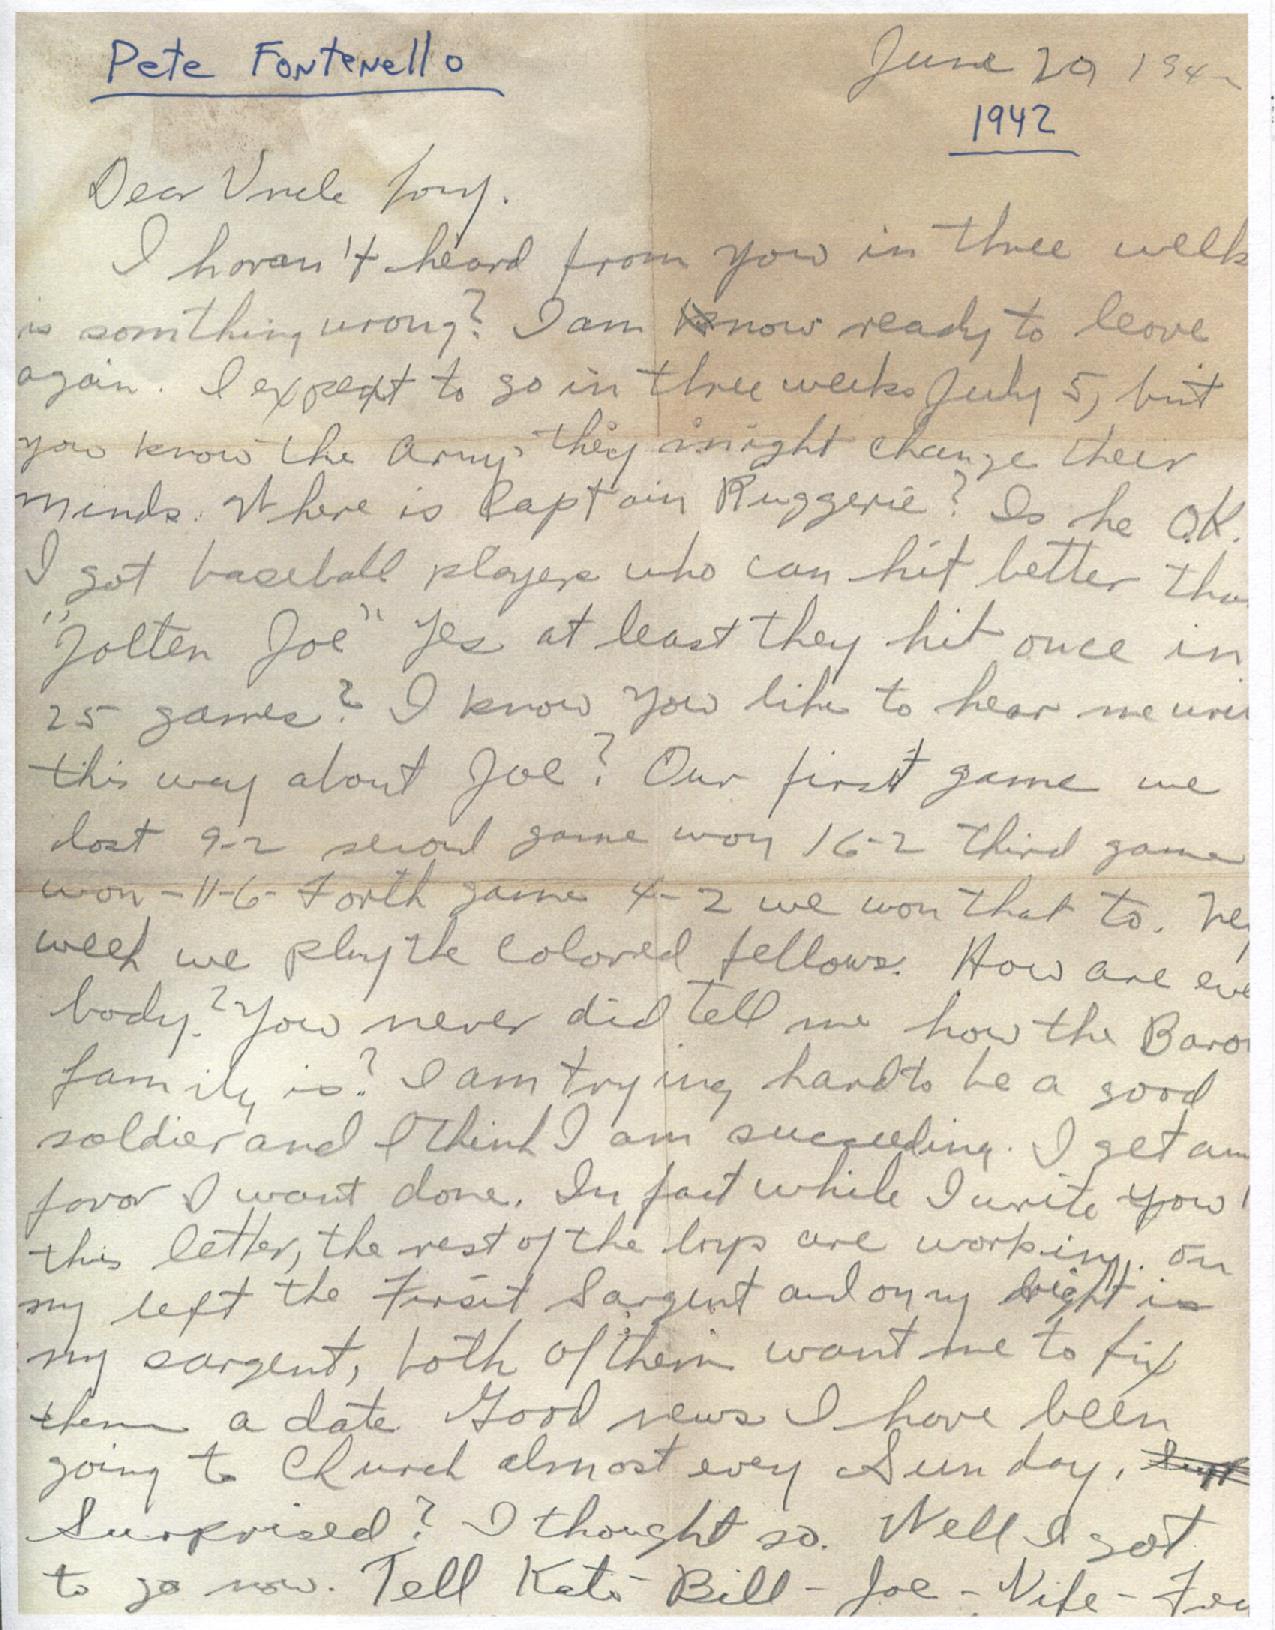 Pete Fontenello
June 20 194
1942
Dear Uncle Tony.
I haven't heard from you in three week
is somthing wrong? I am now ready to leave
again. I expect to go in three weeks July 5, but
you know the Army they might change their
minds. Where is Captain Ruggerie? Is he O.K.
I got baseball players who can hit better tha
"Jolten Joe" Yes at least they hit once in
25 games? I know you like to hear me wri
this way about Joe? Our first game we
lost 9-2 second game won 16-2 third game
won - 11-6 - Forth game 4-2 we won that to. Ne
week we play the colored fellows. How are eve
body? You never did tell me how the Baro
family is? I am trying hard to be a good
soldier and I think I am succeeding. I get an
favor I want done. In fact while I write you
this letter, the rest of the boys are working. on
my left the First Sargent and on my right is
my sargent, both of them want me to fix
them a date Good news I have been
going to Church almost every Sunday.
Surprised? I thought so. Well I got
to go now. Tell Kate - Bill - Joe -